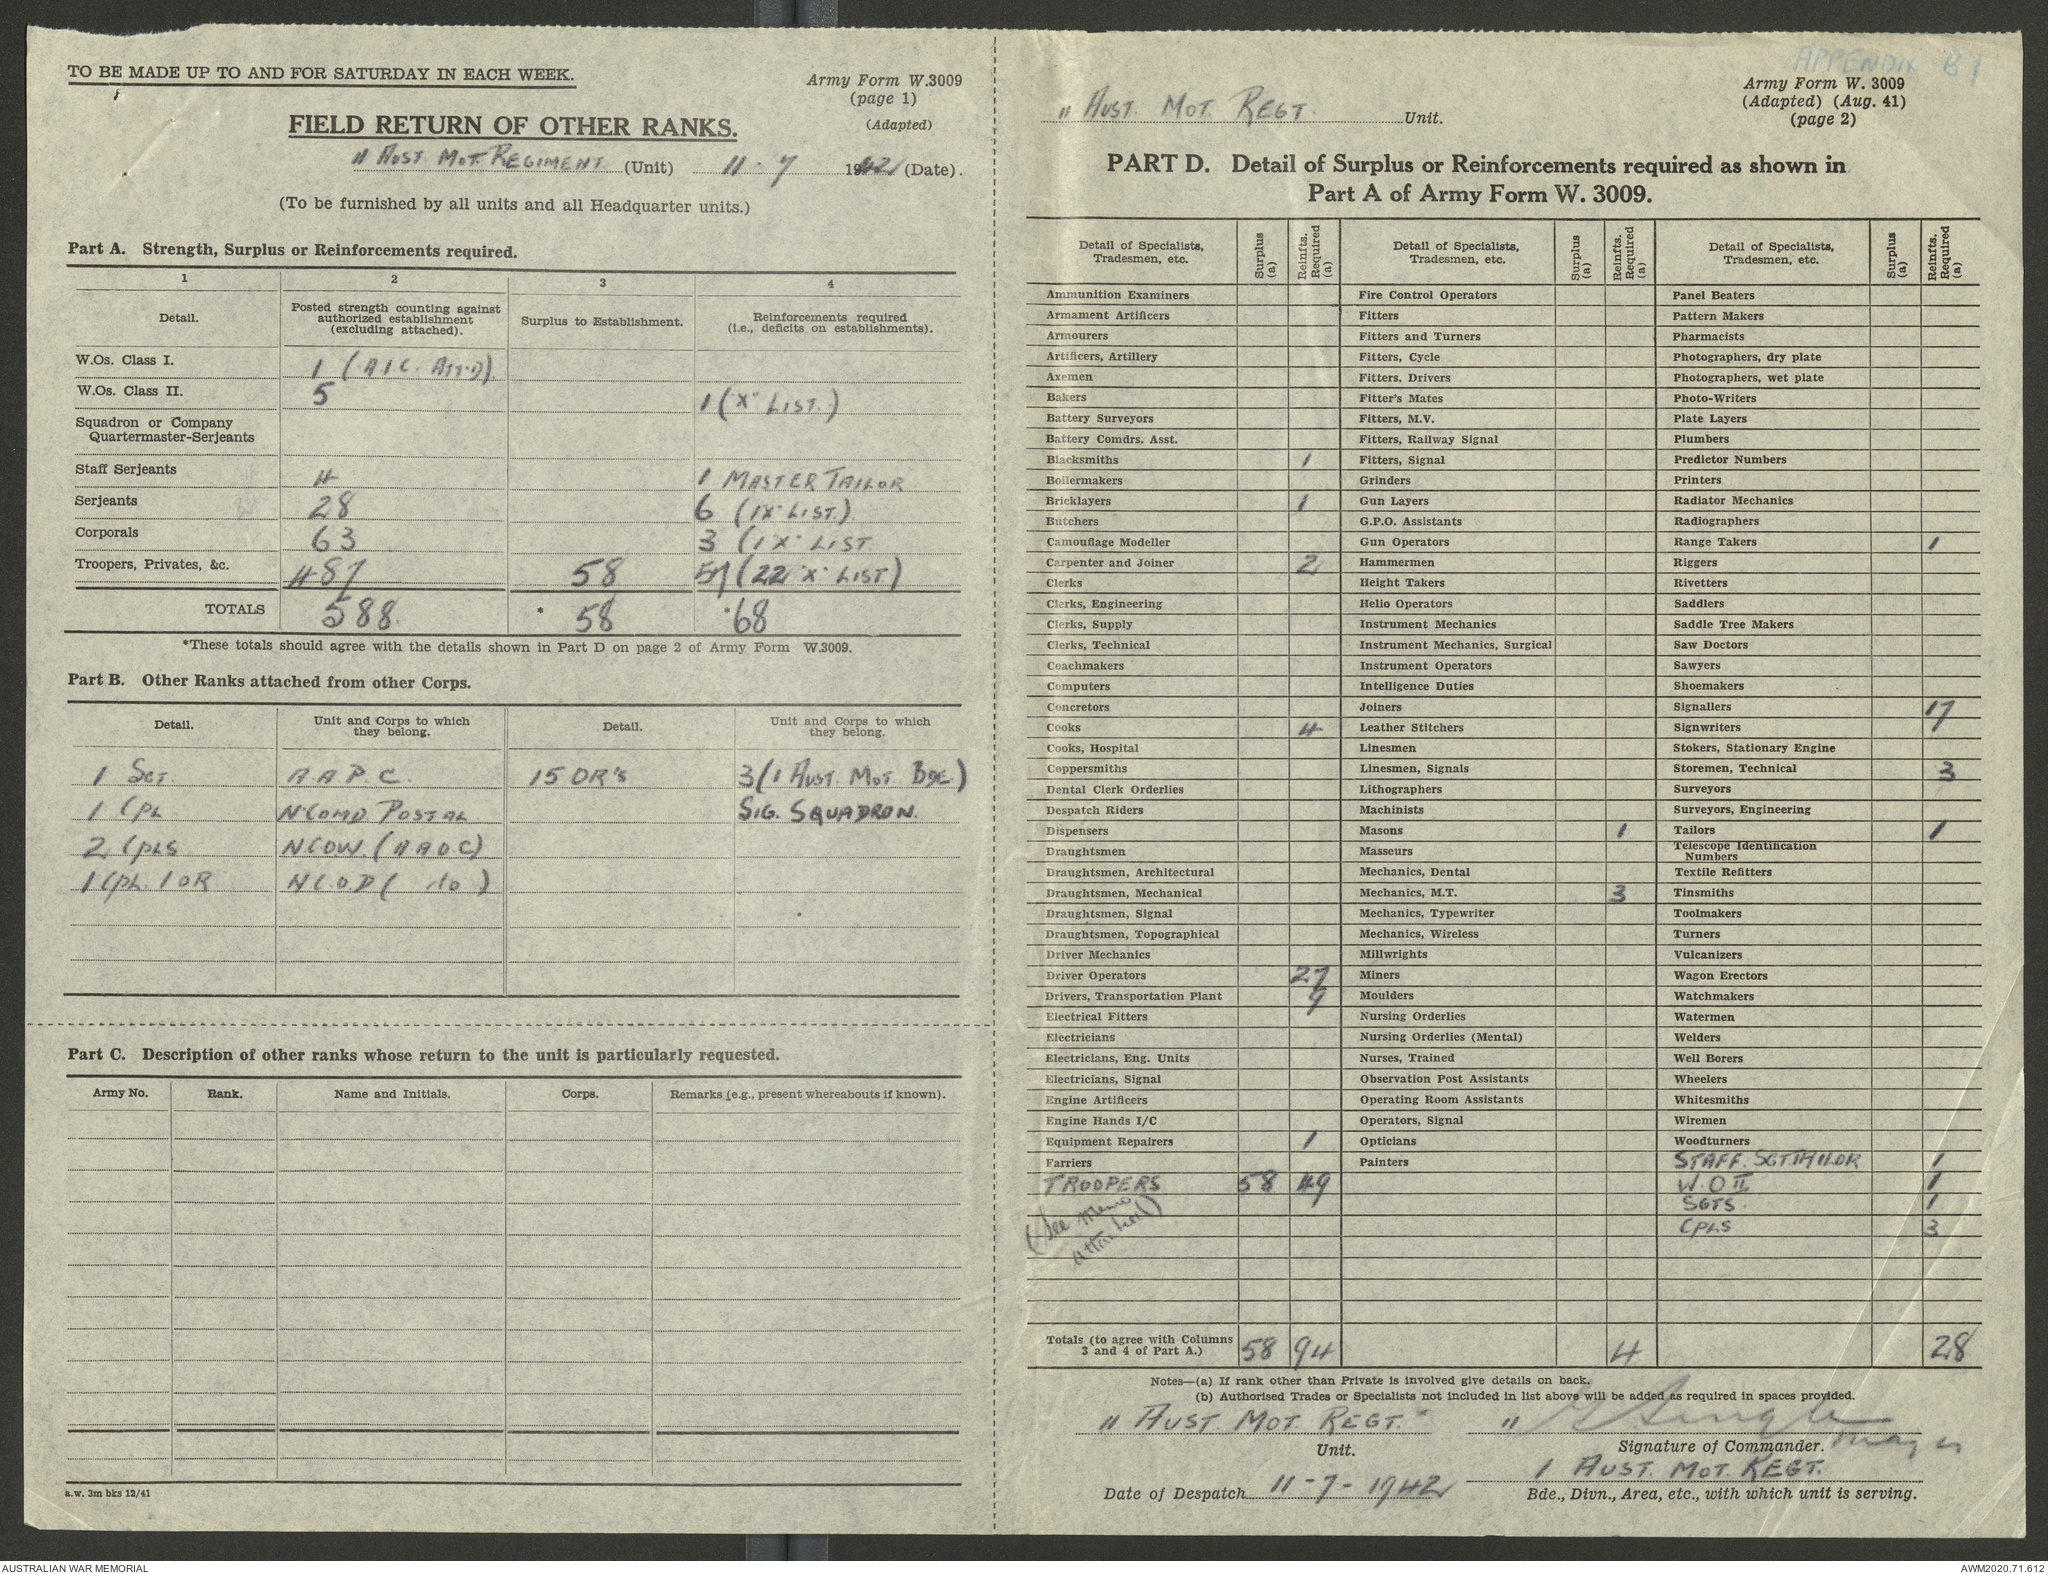 TO BE MADE UP TO AND FOR SATURDAY IN EACH WEEK.
Army Form W.3009
(page 1)
(Adapted)
FIELD RETURN OF OTHER RANKS.
11 AUST. MOT. REGIMENT (Unit) 11-7 1942 (Date).
(To be furnished by all units and all Headquarter units.)
Part A. Strength, Surplus or Reinforcements required.
1 2 3 4
Detail. Posted strength counting against authorized establishment (excluding attached). Surplus to Establishment. Reinforcements required (i.e., deficits on establishments).
W.Os. Class I. 1 (A.I.C. ATT'D)
W.Os. Class II. 5 1 ("X" LIST.)
Squadron or Company
Quartermaster-Serjeants
Staff Serjeants 4 1 MASTER TAILOR
Serjeants 28 6 (1 X LIST.)
Corporals 63 3 (1 X LIST
Troopers, Privates, &c. 487 58 57 (22 "X" LIST)
TOTALS 588 * 58 *68
*These totals should agree with the details shown in Part D on page 2 of Army Form W.3009.
Part B. Other Ranks attached from other Corps.
Detail. Unit and Corps to which they belong. Detail. Unit and Corps to which they belong.
1 SGT. A.A.P.C. 15 OR'S 3 (1 AUST. MOT BDE.)
1 CPL N'COMD POSTAL SIG. SQUADRON.
2 CPLS N.C.O.W. (A A O C)
1 CPL. 1 OR N.C.O.D ( do )
Part C. Description of other ranks whose return to the unit is particularly requested.
Army No. Rank. Name and Initials. Corps. Remarks (e.g., present whereabouts if known).
a.w. 3m bks 12/41
APPENDIX B1
Army Form W. 3009
(Adapted) (Aug. 41)
(page 2)
11 AUST. MOT. REGT. Unit.
PART D. Detail of Surplus or Reinforcements required as shown in
Part A of Army Form W. 3009.
Detail of Specialists, Tradesmen, etc. Surplus (a) Reinfts. Required (a) Detail of Specialists, Tradesmen, etc. Surplus (a) Reinfts. Required (a) Detail of Specialists, Tradesmen, etc. Surplus (a) Reinfts. Required (a)
Ammunition Examiners Fire Control Operators Panel Beaters
Armament Artificers Fitters Pattern Makers
Armourers Fitters and Turners Pharmacists
Artificers, Artillery Fitters, Cycle Photographers, dry plate
Axemen Fitters, Drivers Photographers, wet plate
Bakers Fitter's Mates Photo-Writers
Battery Surveyors Fitters, M.V. Plate Layers
Battery Comdrs. Asst. Fitters, Railway Signal Plumbers
Blacksmiths 1 Fitters, Signal Predictor Numbers
Boilermakers Grinders Printers
Bricklayers 1 Gun Layers Radiator Mechanics
Butchers G.P.O. Assistants Radiographers
Camouflage Modeller Gun Operators Range Takers 1
Carpenter and Joiner 2 Hammermen Riggers
Clerks Height Takers Rivetters
Clerks, Engineering Helio Operators Saddlers
Clerks, Supply Instrument Mechanics Saddle Tree Makers
Clerks, Technical Instrument Mechanics, Surgical Saw Doctors
Coachmakers Instrument Operators Sawyers
Computers Intelligence Duties Shoemakers
Concretors Joiners Signallers 17
Cooks 4 Leather Stitchers Signwriters
Cooks, Hospital Linesmen Stokers, Stationary Engine
Coppersmiths Linesmen, Signals Storemen, Technical 3
Dental Clerk Orderlies Lithographers Surveyors
Despatch Riders Machinists Surveyors, Engineering
Dispensers Masons 1 Tailors 1
Draughtsmen Masseurs Telescope Identification Numbers
Draughtsmen, Architectural Mechanics, Dental Textile Refitters
Draughtsmen, Mechanical Mechanics, M.T. 3 Tinsmiths
Draughtsmen, Signal Mechanics, Typewriter Toolmakers
Draughtsmen, Topographical Mechanics, Wireless Turners
Driver Mechanics Millwrights Vulcanizers
Driver Operators 27 Miners Wagon Erectors
Drivers, Transportation Plant 9 Moulders Watchmakers
Electrical Fitters Nursing Orderlies Watermen
Electricians Nursing Orderlies (Mental) Welders
Electricians, Eng. Units Nurses, Trained Well Borers
Electricians, Signal Observation Post Assistants Wheelers
Engine Artificers Operating Room Assistants Whitesmiths
Engine Hands I/C Operators, Signal Wiremen
Equipment Repairers 1 Opticians Woodturners
Farriers Painters STAFF. SGT. TAILOR 1
TROOPERS 58 49 W.O II 1
(See memo attached) SGTS 1
CPLS 3
Totals (to agree with Columns 3 and 4 of Part A.) 58 94 4 28
Notes—(a) If rank other than Private is involved give details on back.
(b) Authorised Trades or Specialists not included in list above will be added as required in spaces provided.
11 AUST. MOT. REGT.
Unit. Signature of Commander. Major
1 AUST. MOT. REGT.
Date of Despatch 11-7-1942 Bde., Divn., Area, etc., with which unit is serving.
AUSTRALIAN WAR MEMORIAL AWM2020.71.612